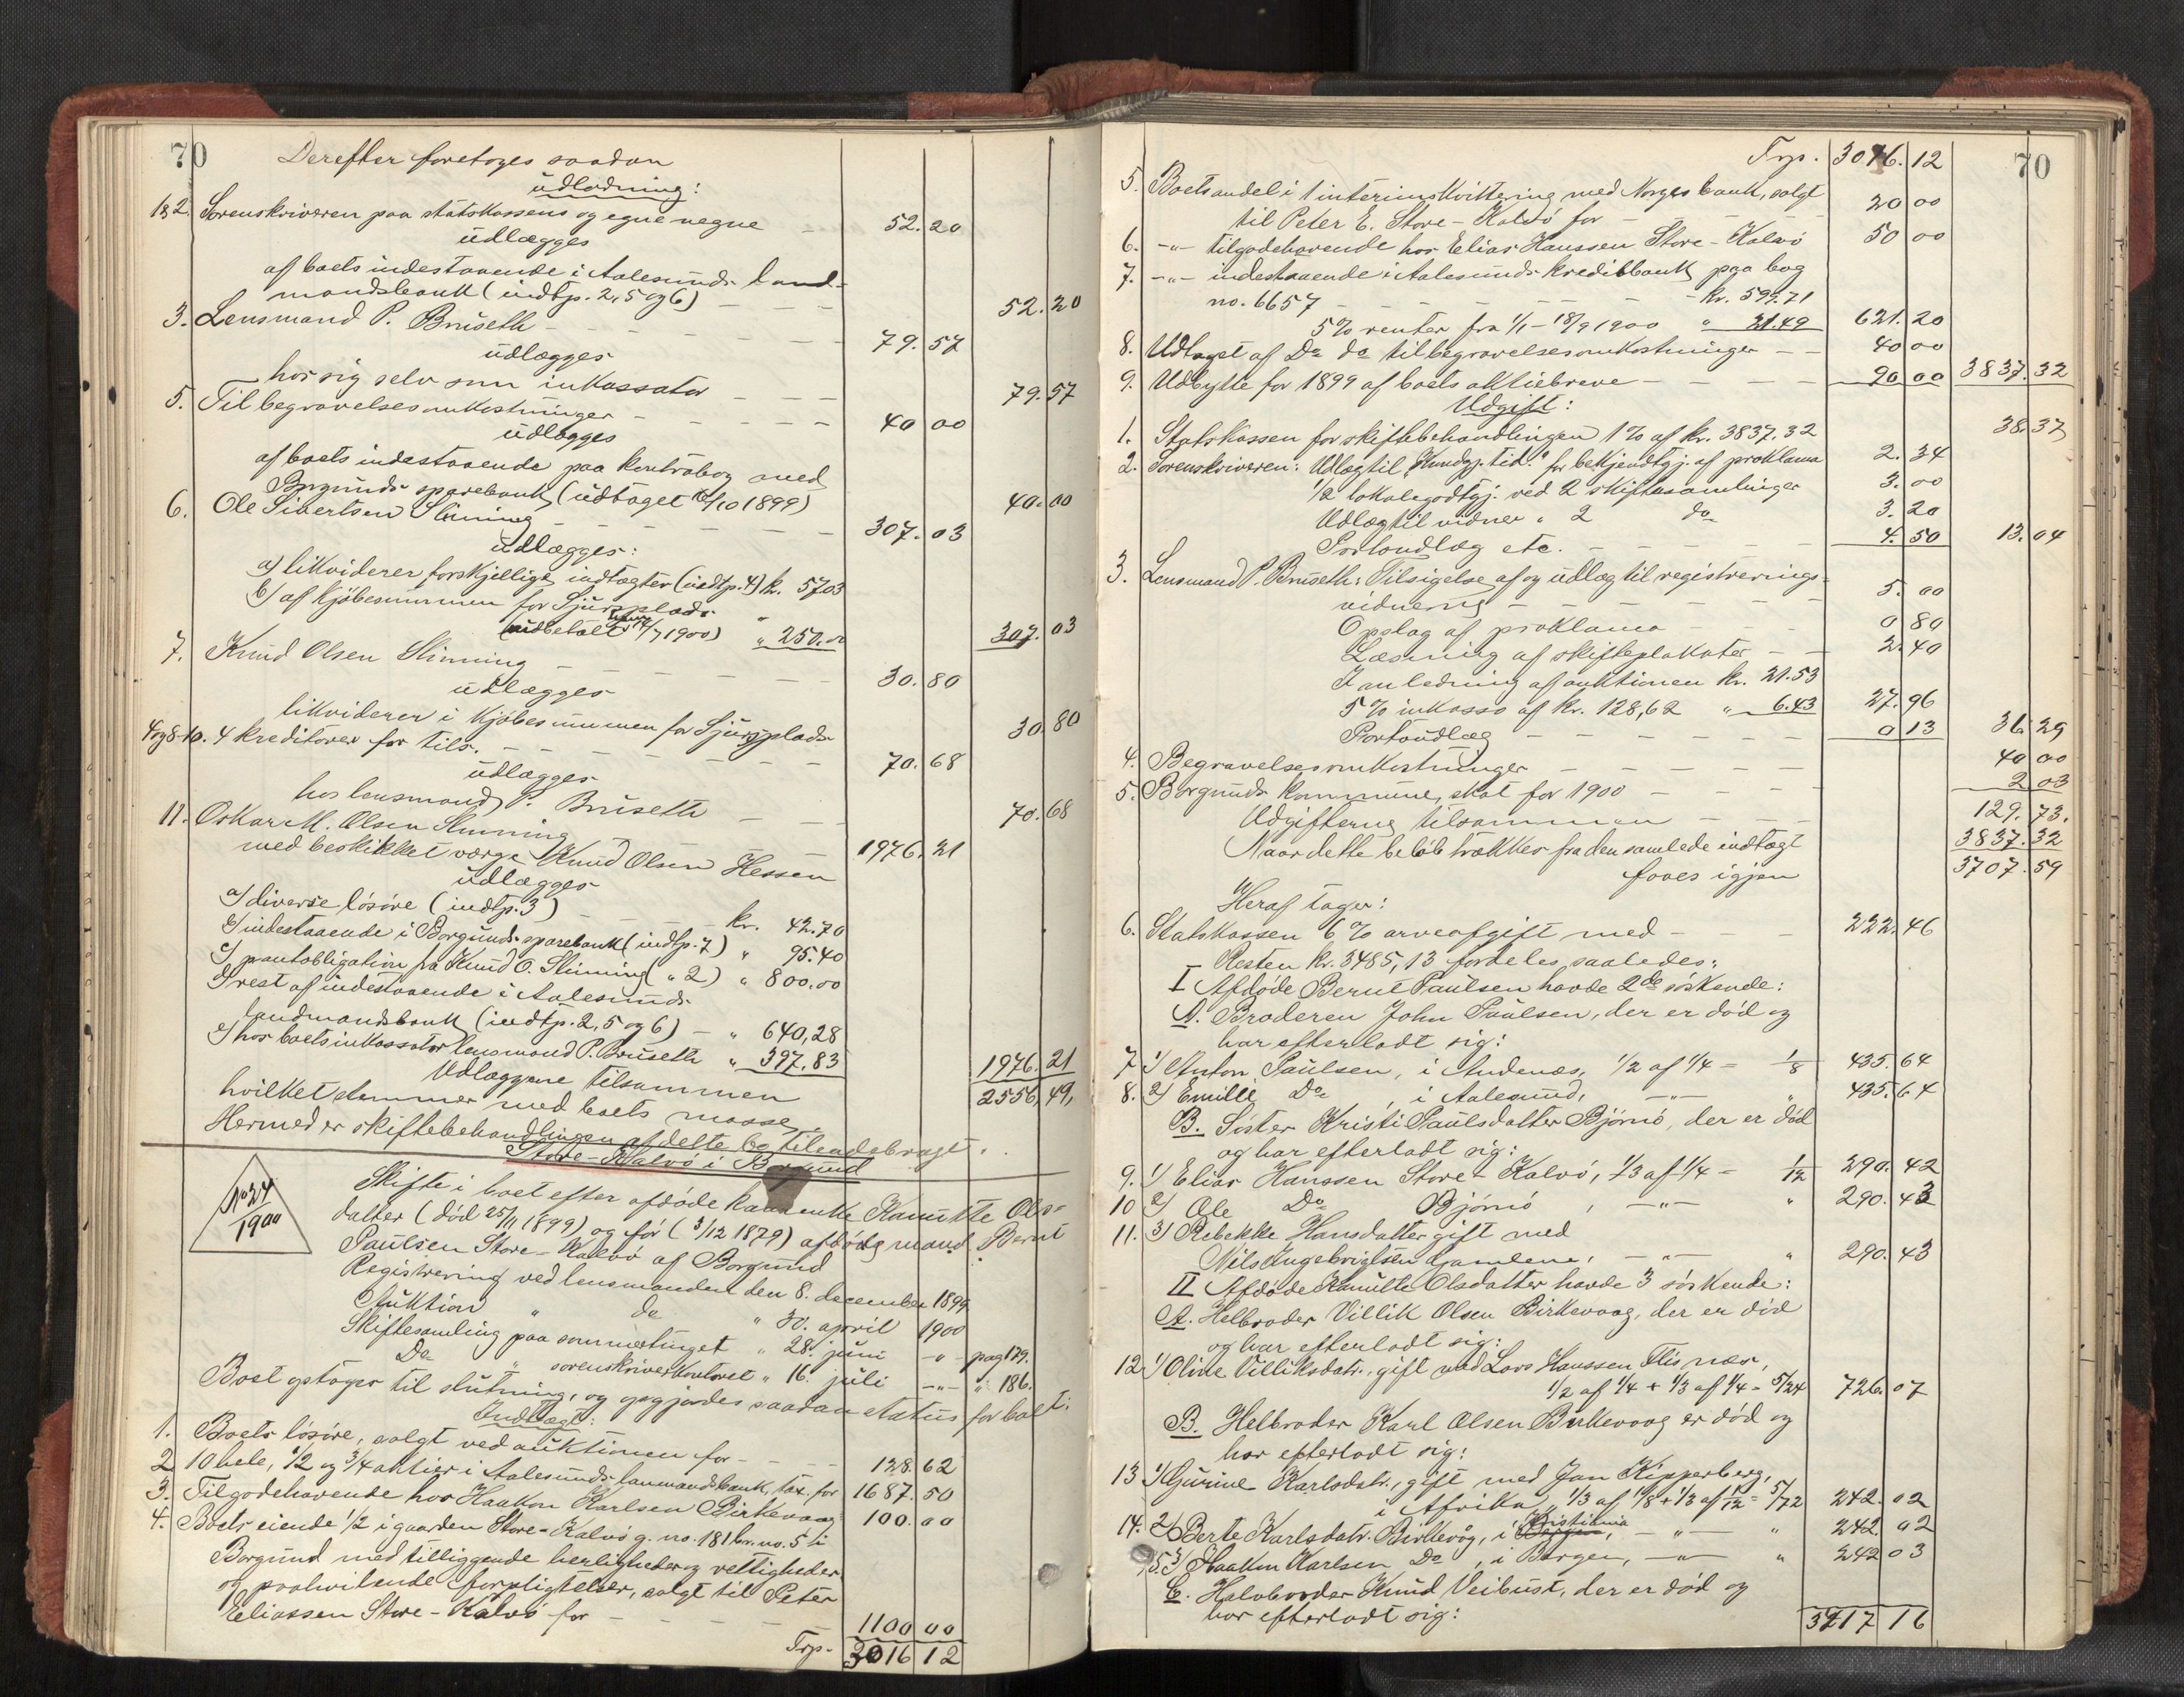 70
Derefter foretoges saadan
udlodning:
1&2. Sorenskriveren paa statskassens og egne vegne - 52.20
udlægges
af boets indestaaende i Aalesunds land-
mandsbank (indtp. 2, 5 og 6) - - 52.20
3. Lensmand P. Bruseth - - - - 79.57
udlægges
hos sig selv som inkassator - - - 79.57
5. Til begravelsesomkostninger - - - - 40 00
udlægges
af boets indestaaende paa kontrabog med
Borgunds sparebank (udtaget 16/10 1899) 40.00
6. Ole Sivertsen Slinning - - - - 307.03
udlægges:
a) likviderer forskjellige indtægter (indtp. 4) kr. 57.03
b) af kjøbesummen for Sjursplads
(indbetalt 14/7 1900) " 250.00 307.03
7. Knud Olsen Slinning - - - - 30.80
udlægges
likviderer i kjøbesummen for Sjursplads 30.80
4og8-10. 4 kreditorer for tils. - - - - - 70.68
udlægges
hos lensmand P. Bruseth - - 70.68
11. Oskar M. Olsen Slinning
med beskikket værge Knud Olsen Hessen 1976.21
udlægges
a) diverse løsøre (indtp. 3) - - - kr. 42.70
b) indestaaende i Borgunds sparebank (indtp. 7) " 95.40
c) pantobligation fra Knud O. Slinning ( " 2) " 800.00
d) rest af indestaaende i Aalesunds
landmandsbank (indtp. 2, 5 og 6) - " 640,28
e) hos boets inkassator lensmand P. Bruseth " 397.83 1976.21
Udlæggene tilsammen 2556,49,
hvilket stemmer med boets masse.
Hermed er skiftebehandlingen af dette bo tilendebragt.
Store-Kalvø i Borgund
No 24
1900
Skifte i boet efter afdøde kaarenke Knutte Ols-
datter (død 25/11 1899) og før (3/12 1879) afdøde mand Bernt
Paulsen Store-Kalvø af Borgund.
Registrering ved lensmanden den 8. december 1899
Auktion " do " 30. april 1900
Skiftesamling paa sommertinget " 28. juni -"- pag 179.
Do " sorenskriverkontoret " 16. juli -"- " 186.
Boet optoges til slutning, og opgjordes saadan status for boet:
Indtægt:
1. Boets løsøre, solgt ved auktionen for - - - - 128.62
2. 10 hele, 1/2 og 3/4 aktier i Aalesunds lanmandsbank, tax. for 1687.50
3. Tilgodehavende hos Haakon Karlsen Birkevaag 100.00
4. Boets eiende 1/2 i gaarden Store-Kalvø g. no. 181 br. no. 5 i
Borgund med tilliggende herligheder og rettigheder
og paahvilende forpligtelser, solgt til Peter
Eliassen Store-Kalvø for - - - - 1100 00
Trp. 3016 12
70
Trp. 3016.12
5. Boets andel i 1 interimskvittering med Norges bank, solgt
til Peter E. Store-Kalvø for - - - 20 00
6. -"- tilgodehavende hos Elias Hanssen Store-Kalvø 50 00
7. -"- indestaaende i Aalesunds kreditbank paa bog
no. 6657 - - - - - - - kr. 599.71
5% renter fra 1/1 - 18/9 1900 " 21.49 621.20
8. Udtaget af Do do til begravelsesomkostninger - - 40 00
9. Udbytte for 1899 af boets aktiebreve - - - - 90.00 3837.32
Udgift:
1. Statskassen for skiftebehandlingen 1% af kr. 3837.32 38.37
2. Sorenskriveren: Udlæg til "Kundgj. tid." for bekjendtgj. af proklama 2.34
1/2 lokalegodtgj. ved 2 skiftesamlinger 3.00
Udlæg til vidner " 2 do 3.20
Portoudlæg etc. - - - - 4.50 13.04
3. Lensmand P. Bruseth: Tilsigelse af og udlæg til registrerings-
vidnerne - - - - - - 5.00
Opslag af proklama - - - 0 80
Læsning af skifteplakater - - 2.40
I anledning af auktionen kr. 21.53
5% inkasso af kr. 128,62 " 6.43 27.96
Portoudlæg - - - - - - 0 13 36.29
4. Begravelsesomkostninger - - - - - 40 00
5. Borgunds kommune, skat for 1900 - - - - 2 03
Udgifterne tilsammen - - - 129.73.
Naar dette beløb trækkes fra den samlede indtægt 3837.32
faaes igjen 3707.59
Heraf tager:
6. Statskassen 6% arveafgift med - - - 222.46
Resten kr. 3485,13 fordeles saaledes:
I Afdøde Bernt Paulsen havde 2de søskende:
A. Broderen John Paulsen, der er død og
har efterladt sig:
7 1) Anton Paulsen, i Andenæs, 1/2 af 1/4 = 1/8 435.64
8. 2) Emilie Do, i Aalesund, -"- " 435.64
B. Søster Kristi Paulsdatter Bjørnø, der er død
og har efterladt sig:
9. 1) Elias Hanssen Store-Kalvø, 1/3 af 1/4 = 1/12 290.42
10 2) Ole Do Bjørnø, -"- " 290.43
11. 3) Rebekke Hansdatter gift med
Nils Ingebrigtsen Gamlem, -"- " 290.43
II Afdøde Knutte Olsdatter havde 3 søskende:
A. Helbroder Villik Olsen Birkevaag, der er død
og har efterladt sig:
12 1) Oline Villiksdatr., gift med Lars Hanssen Flisnæs,
1/2 af 1/4 + 1/3 af 1/4 = 5/24 726.07
B. Helbroder Karl Olsen Birkevaag er død og
har efterladt sig:
13 1) Gurine Karlsdatr., gift med Jan Kipperberg,
i Afrika, 1/3 af 1/8 + 1/3 af 1/12 = 5/72 242.02
14. 2) Berte Karlsdatr. Birkevåg, i Bergen Kristiania, -"- " 242.02
15. 3) Haakon Karlsen Do, i Bergen, -"- " 242 03
C. Halvbroder Knud Veibust, der er død og
har efterladt sig:
3417 16